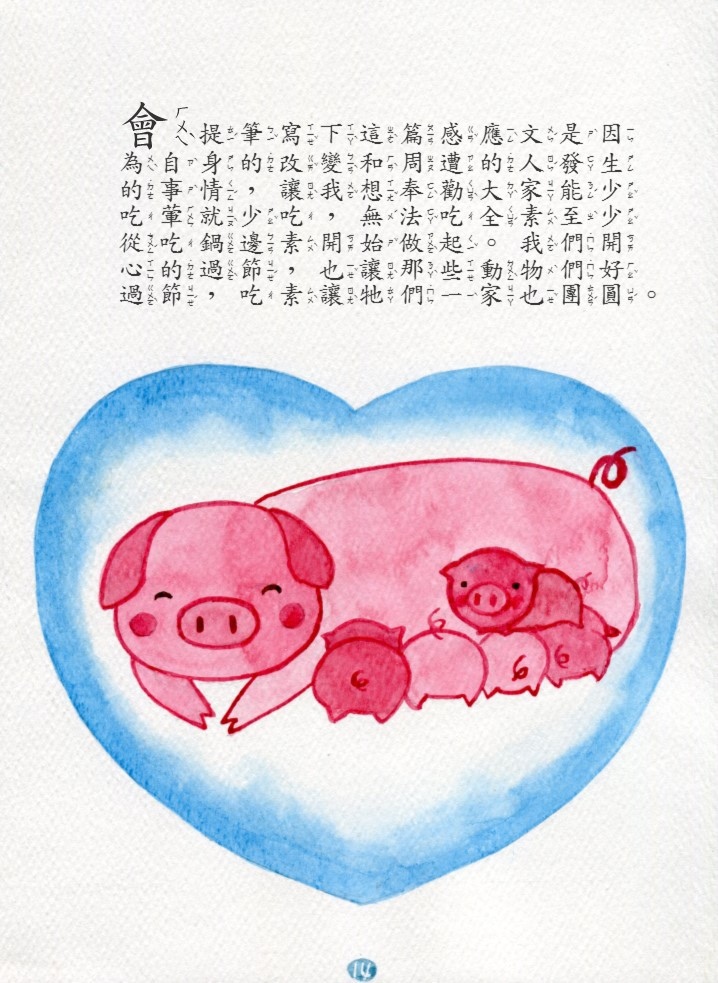 會提筆寫下這篇感應文是因
為自身的改變和周遭的人發生
的事情，讓我想奉勸大家能少
吃葷就少吃，無法吃全素至少
從吃鍋邊素開始做起。我們開
心的過節，也讓那些動物們好
過節，吃素讓牠們一家也團圓。
14